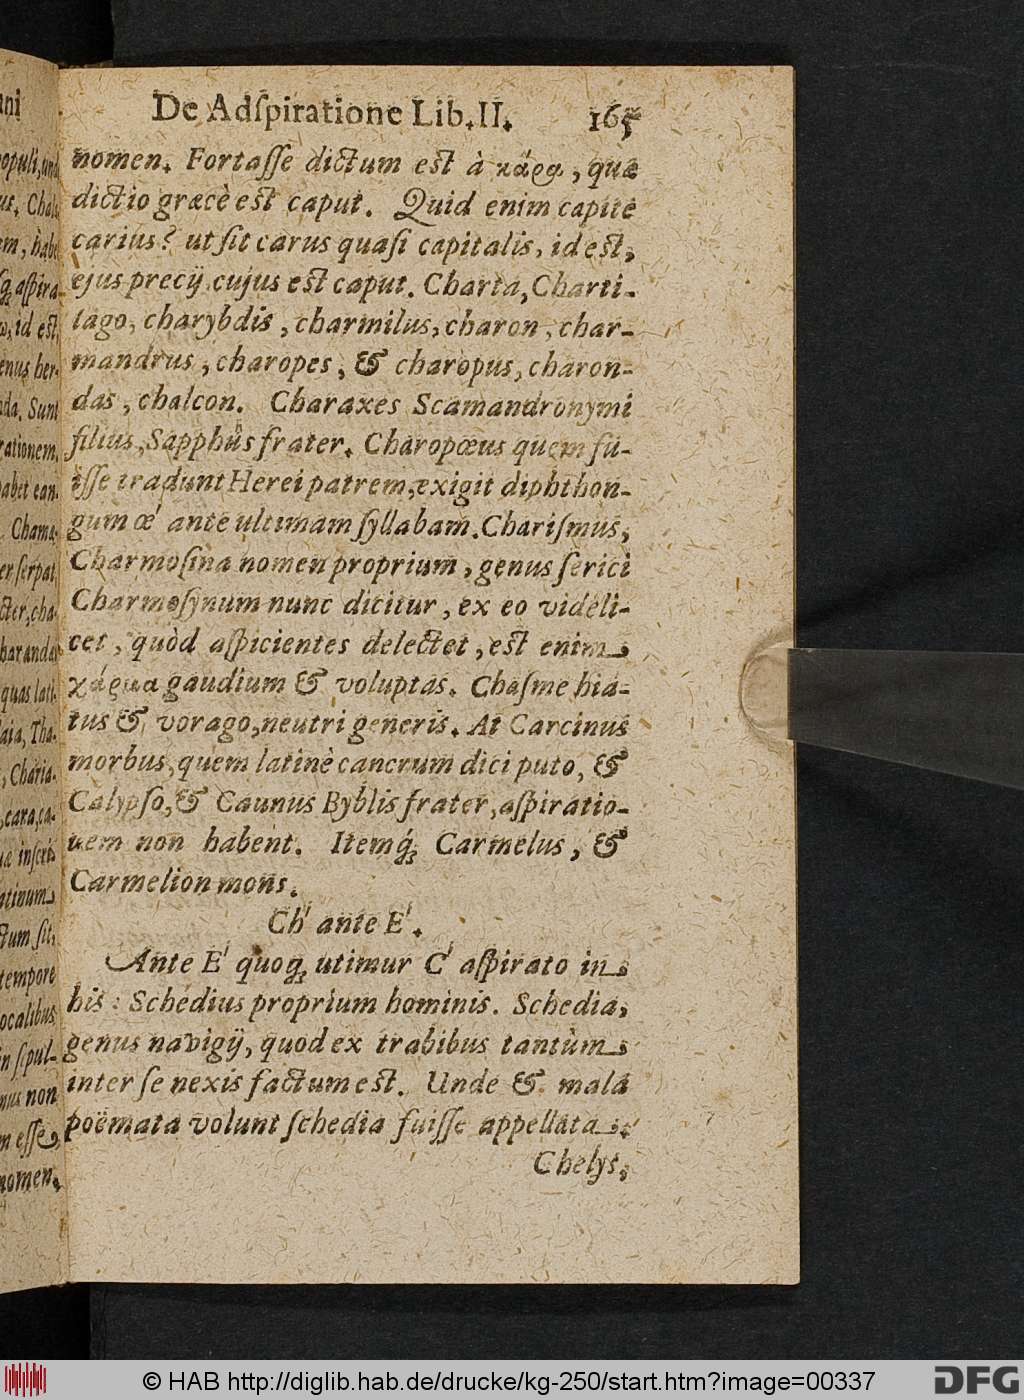 De Adſpiratione Lib. II. 165
nomen. Fortaſſe dictum est à κάρα, quæ
dictio græcè est caput. Quid enim capite
carius? ut ſit carus quaſi capitalis, id est,
ejus precij cujus est caput. Charta, Charti-
tago, charybdis, charmilus, charon, char-
mandrus, charopes, & charopus, charon-
das, chalcon. Charaxes Scamandronymi
filius, Sapphûs frater. Charopœus quem fu-
iſſe tradunt Herei patrem, exigit diphthon-
gum œ' ante ultimam ſyllabam. Chariſmus,
Charmoſina nomen proprium, genus ſerici
Charmoſynum nunc dicitur, ex eo videli-
cet, quòd aſpicientes delectet, est enim
χάρμα gaudium & voluptas. Chaſme hia-
tus & vorago, neutri generis. At Carcinus
morbus, quem latinè cancrum dici puto, &
Calypſo, & Caunus Byblis frater, aſpiratio-
nem non habent. Itemq́; Carmelus, &
Carmelion mons.
Ch' ante E'.
Ante E' quoq; utimur C' aſpirato in
his: Schedius proprium hominis. Schedia,
genus navigij, quod ex trabibus tantùm
inter ſe nexis factum est. Unde & mala
poëmata volunt ſchedia fuiſſe appellata.
Chelys,
© HAB http://diglib.hab.de/drucke/kg-250/start.htm?image=00337
DFG